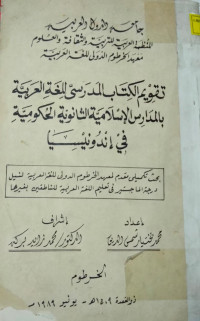 جامعة الدول العربية
المنظمة العربية للتربية والثقافة والعلوم
معهد الخرطوم الدولي للغة العربية
تقويم الكتاب المدرسي للغة العربية
بالمدارس الإسلامية الثانوية الحكومية
في إندونيسيا
بحث تكميلي مقدم لمعهد الخرطوم الدولي للغة العربية لنيل
درجة الماجستير في تعليم اللغة العربية للناطقين بغيرها
إعداد
إشراف
محمد بختيار شمس الدين
الدكتور/ محمد زايد بركة
الخرطوم
ذو القعدة ١٤٠٩هـ - يونيو ١٩٨٩م